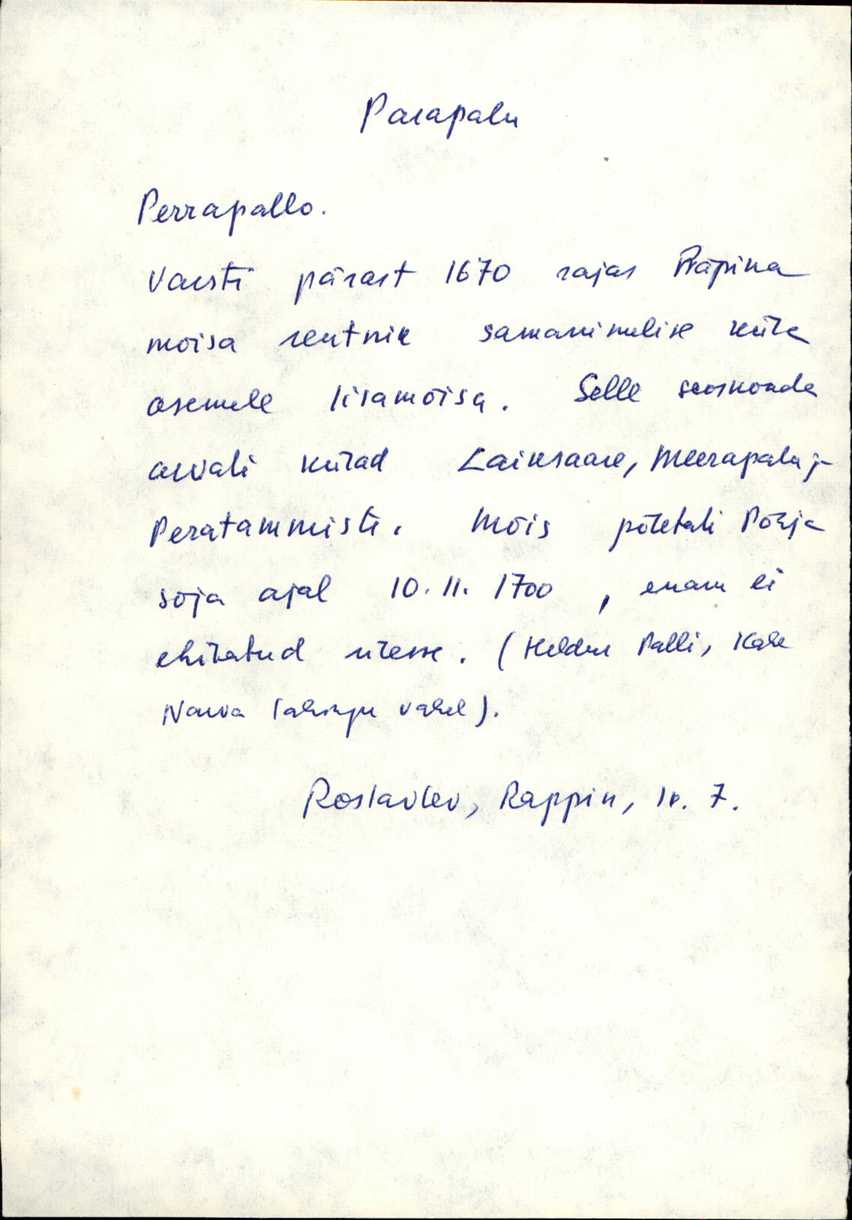 Parapalu
Perrapallo.
Varsti pärast 1670 rajas Räpina
mõisa rentnik samanimelise küla
asemele lisamõisa. Selle seoskonda
arvati külad Laiksaare, Meerapalu ja
Peratammiste. Mõis põletati Põhja
sõja ajal 10.11.1700, enam ei
ehitatud ülesse. (Heldur Palli, Kahe
Narva lahingu vahel).
Roslavlev, Rappin, lk. 7.